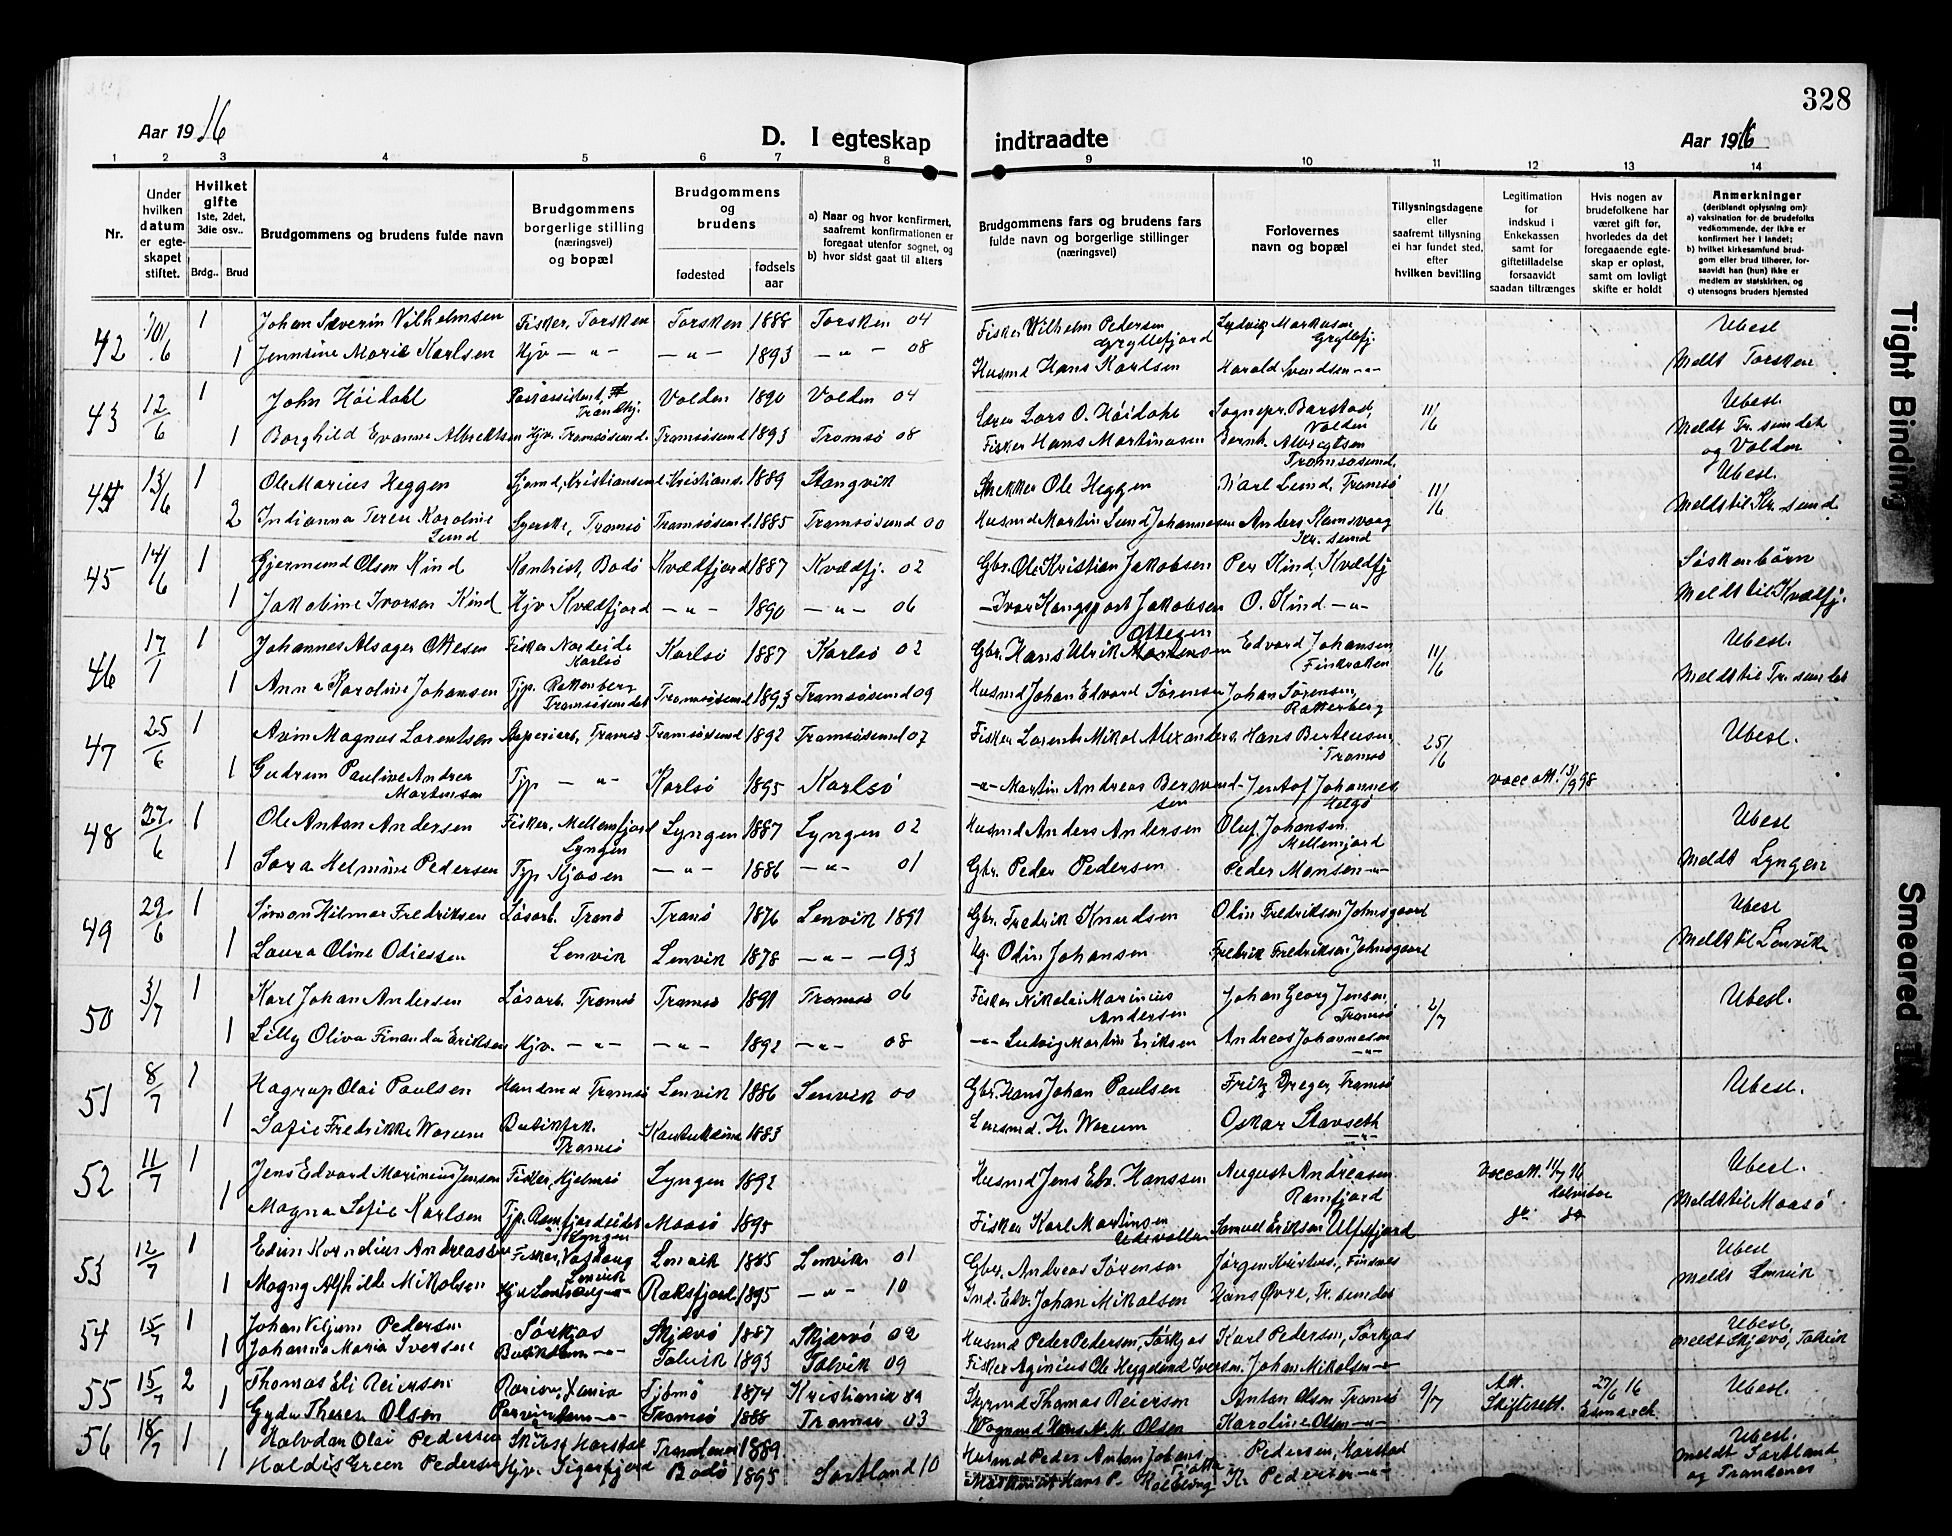 328
Aar 1916
D. I egteskap
indtraadte
Aar 1916
1 2 3 4 5 6 7 8 9 10 11 12 13 14
Nr.
Under hvilken datum er egteskapet stiftet.
Hvilket gifte 1ste, 2det, 3die osv..
Brdg.. Brud
Brudgommens og brudens fulde navn
Brudgommens borgerlige stilling (næringsvei) og bopæl
Brudgommens og brudens
fødested
fødselsaar
a) Naar og hvor konfirmert, saafremt konfirmationen er foregaat utenfor sognet, og
b) hvor sidst gaat til alters
Brudgommens fars og brudens fars fulde navn og borgerlige stillinger (næringsvei)
Forlovernes navn og bopæl
Tillysningsdagene eller saafremt tillysning ei har fundet sted, efter hvilken bevilling
Legitimation for indskud i Enkekassen samt for giftetilladelse forsaavidt saadan tiltrænges
Hvis nogen av brudefolkene har været gift før, hvorledes da det foregaaende egteskap er opløst, samt om lovligt skifte er holdt
Anmerkninger (deriblandt oplysning om):
a) vaksination for de brudefolks vedkommende, der ikke er konfirmert her i landet;
b) hvilket kirkesamfund brudgom eller brud tilhører, forsaavidt han (hun) ikke er medlem av statskirken, og
c) utensogns bruders hjemsted
42 10/6 1 Johan Severin Vilhelmsen Fisker, Torsken Torsken 1888 Torsken 04 Fisker Wilhelm Pedersen Gryllefjord Ludvig Markusen Gryllefj. Ubesl
1 Jennsine Marie Karlsen Hjv -"- -"- 1893 -"- 08 Husmd Hans Karlsen Harald Svendsen -"- Meldt Torsken
43 12/6 1 John Höidahl Postassistent, Trondhj. Volden 1890 Volden 04 Lærer Lars O. Höidahl Sognepr. Barstad, Volden 11/6 Ubesl.
1 Borghild Evanna Albrektsen Hjv. Tromsøsund Tromsøsund 1893 Tromsø 08 Fisker Hans Martinusen Bernh. Albregtsen Tromsøsund. Meldt Tr. sundet og Volden
44 13/6 1 Ole Marius Heggen Sjømd, Kristiansund Kristians. 1889 Stangvik Snekker Ole Heggen Karl Lund, Tromsø 11/6 Ubesl.
2 Indianna Karoline Lund Syerske, Tromsø Tromsøsund 1885 Tromsøsund 00 Husmd Martin Lund Johannesen Anders Kr. sund Meldt til Kr. sund
45 14/6 1 Gjermund Olsen Kind Kontorist, Bodø Kvædfjord 1887 Kvædfj. 02 Gbr. Ole Kristian Jakobsen Per Kind, Kvædfj Søskenbørn
1 Jakobine Iversen Kind Hjv Kvædfjord -"- 1890 -"- 06 - Ivar Jakobsen O. Kind -"- Meldt til Kvædfj.
46 17/ 1 Johannes Alsager Ottesen Fisker Karlsø Karlsø 1887 Karlsø 02 Gbr. Hans Ulrik Ottesen Edvard Johansen Finkroken 11/6 Ubesl.
1 Anna Karoline Johansen Tjp. Tromsøsundet Tromsøsund 1893 Tromsøsund 09 Husmd Johan Edvard Sørensen Johan Sørensen, Meldt til Tr. sundet
47 25/6 1 Arvin Magnus Lorentsen Tromsø Tromsøsund 1892 Tromsøsund 07 Fisker Lorents Mikal Alexanders. Hans Berteusen, Tromsø 25/6 Ubesl.
1 Gudrun Pauline Andrea Martinsen Tjp -"- Karlsø 1895 Karlsø -"- Martin Andreas Johannes. Helgø vaccatt. 13/9 98
48 27/6 1 Ole Anton Andersen Fisker, Mellemfjord Lyngen Lyngen 1887 Lyngen 02 Husmd Anders Andersen Oluf Johansen Mellemjord Ubesl
1 Sara Helmine Pedersen Tjp Kjosen -"- 1886 -"- 01 Gbr. Peder Pedersen Peder Monsen -"- Meldt Lyngen
49 29/6 1 Simon Hilmar Fredriksen Løsarb. Tranø Tranø 1876 Lenvik 1891 Gbr. Fredrik Knudsen Odin Fredriksen Johnsgaard Ubesl
1 Laura Oline Odiessen Lenvik Lenvik 1878 -"- -93 Odin Johansen Fredrik Fredriksen Johnsgaard Meldt til Lenvik
50 3/7 1 Karl Johan Andersen Løsarb. Tromsø Tromsø 1891 Tromsø 06 Fisker Nikolai Marinius Andersen Johan Georg Jensen, Tromsø 2/7 Ubesl.
1 Lilly Oliva Finanda Eriksen Hjv. -"- -"- 1892 -"- 08 -"- Ludvig Martin Eriksen Andreas Johannesen -"-
51 8/7 1 Hagrup Olai Paulsen Handmd Tromsø Lenvik 1886 Lenvik 00 Gbr. Hans Johan Paulsen Fritz Dreyer, Tromsø Ubesl.
1 Sofie Fredrikke Worum Butikfrk. Tromsø Kautokeino 1883 Lensmd. H. Worum Oskar Stavseth -"-
52 11/7 1 Jens Edvard Marinius Jensen Fisker, Hjelmsø Lyngen 1892 Husmd Jens Edv. Hanssen August Andreasen Ramfjord Vaccatt. 11/7 16 Ubesl.
1 Magna Sofie Karlsen Tjp. Ramfjordeidet Maasø 1895 Fisker Karl Martinsen Samuel Eriksen Ulfsfjord do do Meldt til Maasø
53 12/7 1 Edin Kornelius Andreassen Fisker, Lenvik Lenvik 1885 Lenvik 01 Gbr. Andreas Sørensen Jørgen Kristens., Finsnes Ubesl
1 Magny Alfhilde Mikalsen Hjv -"- Raksfjord 1895 -"- 10 Ind. Edv. Johan Mikalsen Hans Øvre, Tr. sundet Meldt Lenvik
54 15/7 1 Johan Viljum Pedersen Sørkjos Skjævø 1887 Skjærvö 02 Husmd Peder Pedersen, Sørkjos Karl Pedersen, Sørkjos Ubesl.
1 Johanna Maria Iversen -"- Talvik 1893 Talvik 09 Fisker Aginius Ole Heggelund Iversen Johan Mikalsen -"- Meldt Skjærvö, Talvik
55 15/7 2 Thomas Eli Reiersen Tjømø 1874 Kristiania 89 Styrmd Thomas Reiersen Anton Olsen Tromsø 9/7 Att. Skifterett. 27/6 16 Esmarch Ubesl.
1 Gyda Therese Olsen -"- Tromsø 1888 Tromsø 03 Vognmd Hans N. M. Olsen Karoline Olsen -"-
56 18/7 1 Halvdan Olai Pedersen Harstad Trondenes 1889 Husmd Peder Anton Johans. Pedersen, Harstad Ubesl.
1 Haldis Green Pedersen Hjv. Sigerfjord Bodø 1895 Sortland 10 Maskinist Hans P. K. Pedersen -"- Meldt Sortland og Trondenes
Tight Binding
Smeared